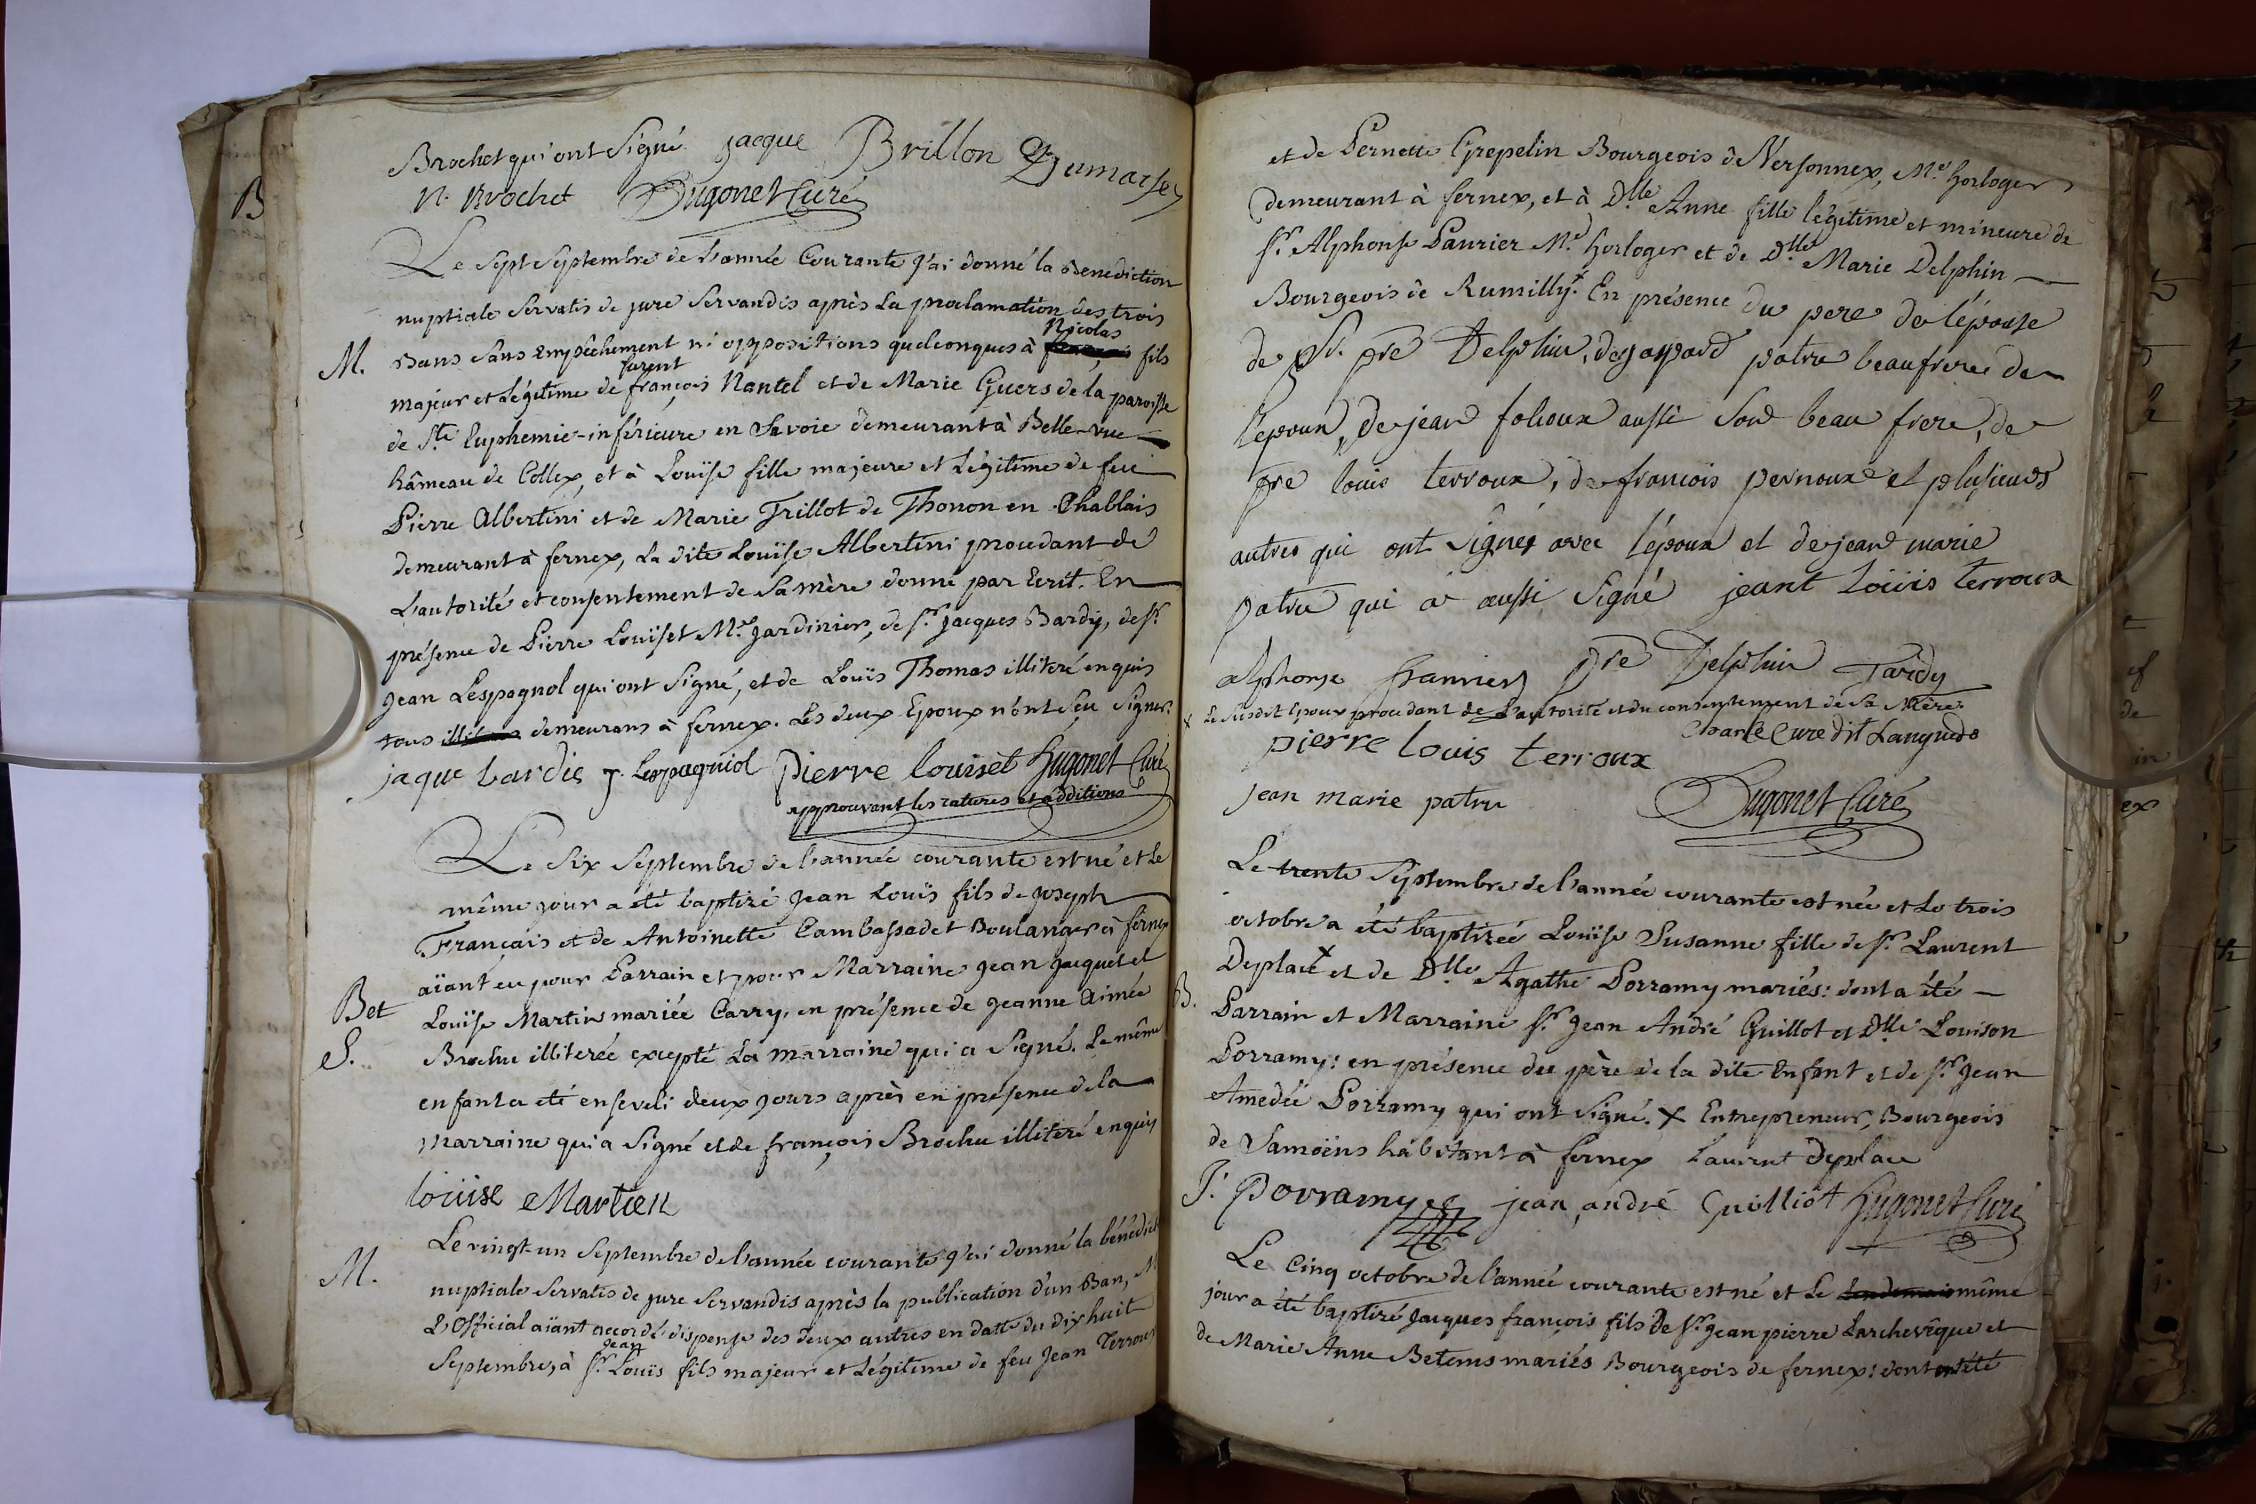 Brochet qui ont Signé jacque Brillon Dumarse
N. Brochet Hugonet Curé
B
Le sept Septembre de l'année Courante j'ai donné la Benédiction
nuptiale Servatis de jure Servandis après la proclamation des trois
Nicolas
M. Bans sans Empêchement ni oppositions quelconques à fils
furent
majeur et Légitime de françois Nantel et de Marie Guers de la paroisse
de Ste Euphemie-inférieure en Savoie demeurant à Belle-vue
hâmeau de Collex, et à Louïse fille majeure et Légitime de feu
Pierre Albertini et de Marie Trillot de Thonon en Chablais
demeurant à fernex, La dite Louïse Albertini procedant de
L'autorité et consentement de Sa mère donné par Ecrit. En
présence de Pierre Louïset Me Jardinier, de sr Jacques Bardy, de sr
Jean Lespagnol qui ont Signé, et de Louïs Thomas illiteré enquis
tous demeurans à fernex. Les deux Epoux n'ont Sçu Signer.
jaque bardis J. Lespagniol pierre louiset Hugonet Curé
approuvant les ratures et additions
Le Six Septembre de l'année courante est né et Le
même jour a eté baptizé Jean Louïs fils de Joseph
Français et de Antoinette Cambassadet Boulanger à fernex
aïant eu pour Parrain et pour Marraine Jean Jacquet et
Bet Louïse Martin mariée Carry, en présence de Jeanne Aimée
S. Brochu illiterée excepté La marraine qui a Signé. Le même
enfant a eté enseveli deux jours après en présence de la
Marraine qui a Signé et de françois Brochu illiteré enquis
loüise Martien
Le vingt-un Septembre de l'année courante j'ai donné la bénédict
M. nuptiale Servatis de jure Servandis après la publication d'un Ban, M
L'Official aïant accordé dispense des deux autres en datte du dix huit
Jean
Septembre, à sr Louïs fils majeur et Légitime de feu Jean Terroux
et de Pernette Grepelin Bourgeois de Versonnex, Me horloger
demeurant à fernex, et à Dlle Anne fille légitime et mineure de
sr Alphonse Pannier Me horloger et de Dlle Marie Delphin
Bourgeois de Rumilly.x En présence du pere de l'épouse
de Sr. pre Delphin, de gaspard patru beaufrere de
l'epoux, de jean folioux aussi Son beau frere, de
pre louis terroux, de francois pernoux et plusieurs
autres qui ont signés avec l'époux et de jean marie
patru qui a aussi Signé jeant loüis terroux
alphonse pre Delphin Tardy
x Le susdit Epoux procedant de L'autorité et du consentement de Sa Mère.
Charle Cure dit Langudo
pierre louis terroux
jean marie patru Hugonet Curé
Le trente Septembre de l'année courante est née et Le trois
octobre a été baptizée Louïse Susanne fille de sr Laurent
Deplacex et de Dlle Agathe Porramy mariés: dont a été
B. Parrain et Marraine sr Jean André Guillot et Dlle Louison
Porramy: en présence du père de la dite Enfant et de sr Jean
Amedée Porramy qui ont Signé. X Entrepreneur, Bourgeois
de Samoëns habitant à fernex Laurent Deplace
J. Porramy jean andré Guilliot Hugonet Curé
Le Cinq octobre de l'année courante est né et Le lendemain même
jour a été baptizé Jacques françois fils de sr Jean pierre Larchevêque et
de Marie Anne Betems mariés Bourgeois de fernex: dont ont été